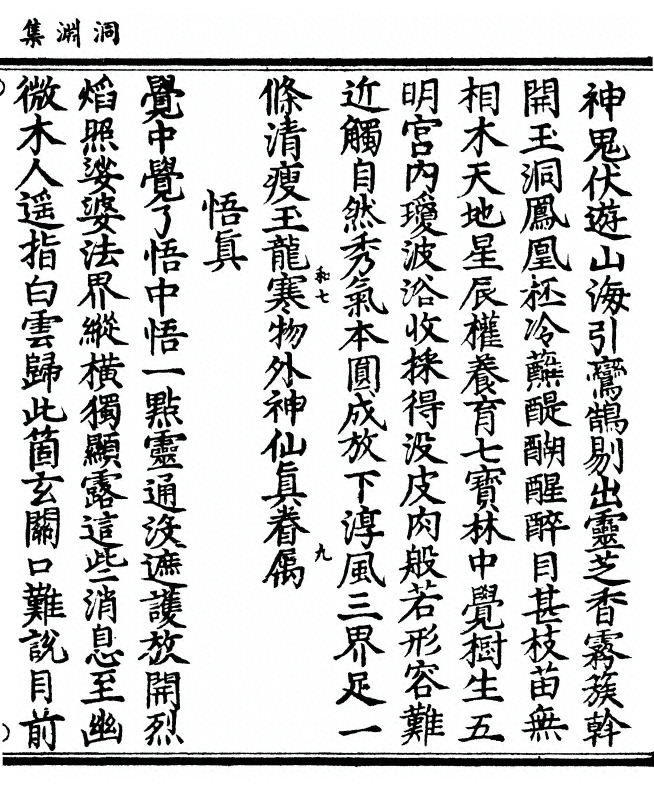 洞淵集
神鬼伏遊山海引鸞鵠剔出靈芝香霧蔟幹
開玉洞鳳凰柸冷蘸醍醐醒醉目甚枝苗無
相木天地星辰權養育七寶林中覺樹生五
明宮內瓊波浴收採得没皮肉般若形容難
近觸自然秀氣本圓成放下淳風三界足一
條清瘦玉龍寒物外神仙眞眷属
和七
九
悟眞
覺中覺了悟中悟一點靈通没遮護放開烈
焰照娑婆法界縱横獨顯露這些消息至幽
微木人遥指白雲歸此箇玄關口難說目前